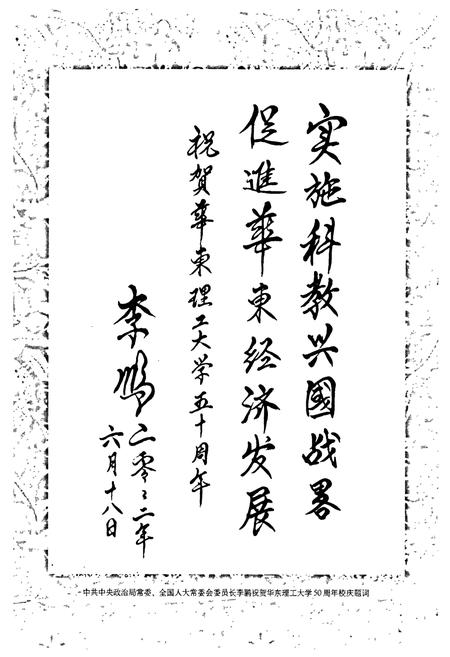 实施科教兴國战畧
促進華東经济发展
祝賀華東理工大学五十周年
李鹏
二零零二年
六月十八日
中共中央政治局常委、全国人大常委会委员长李鹏祝贺华东理工大学50周年校庆题词